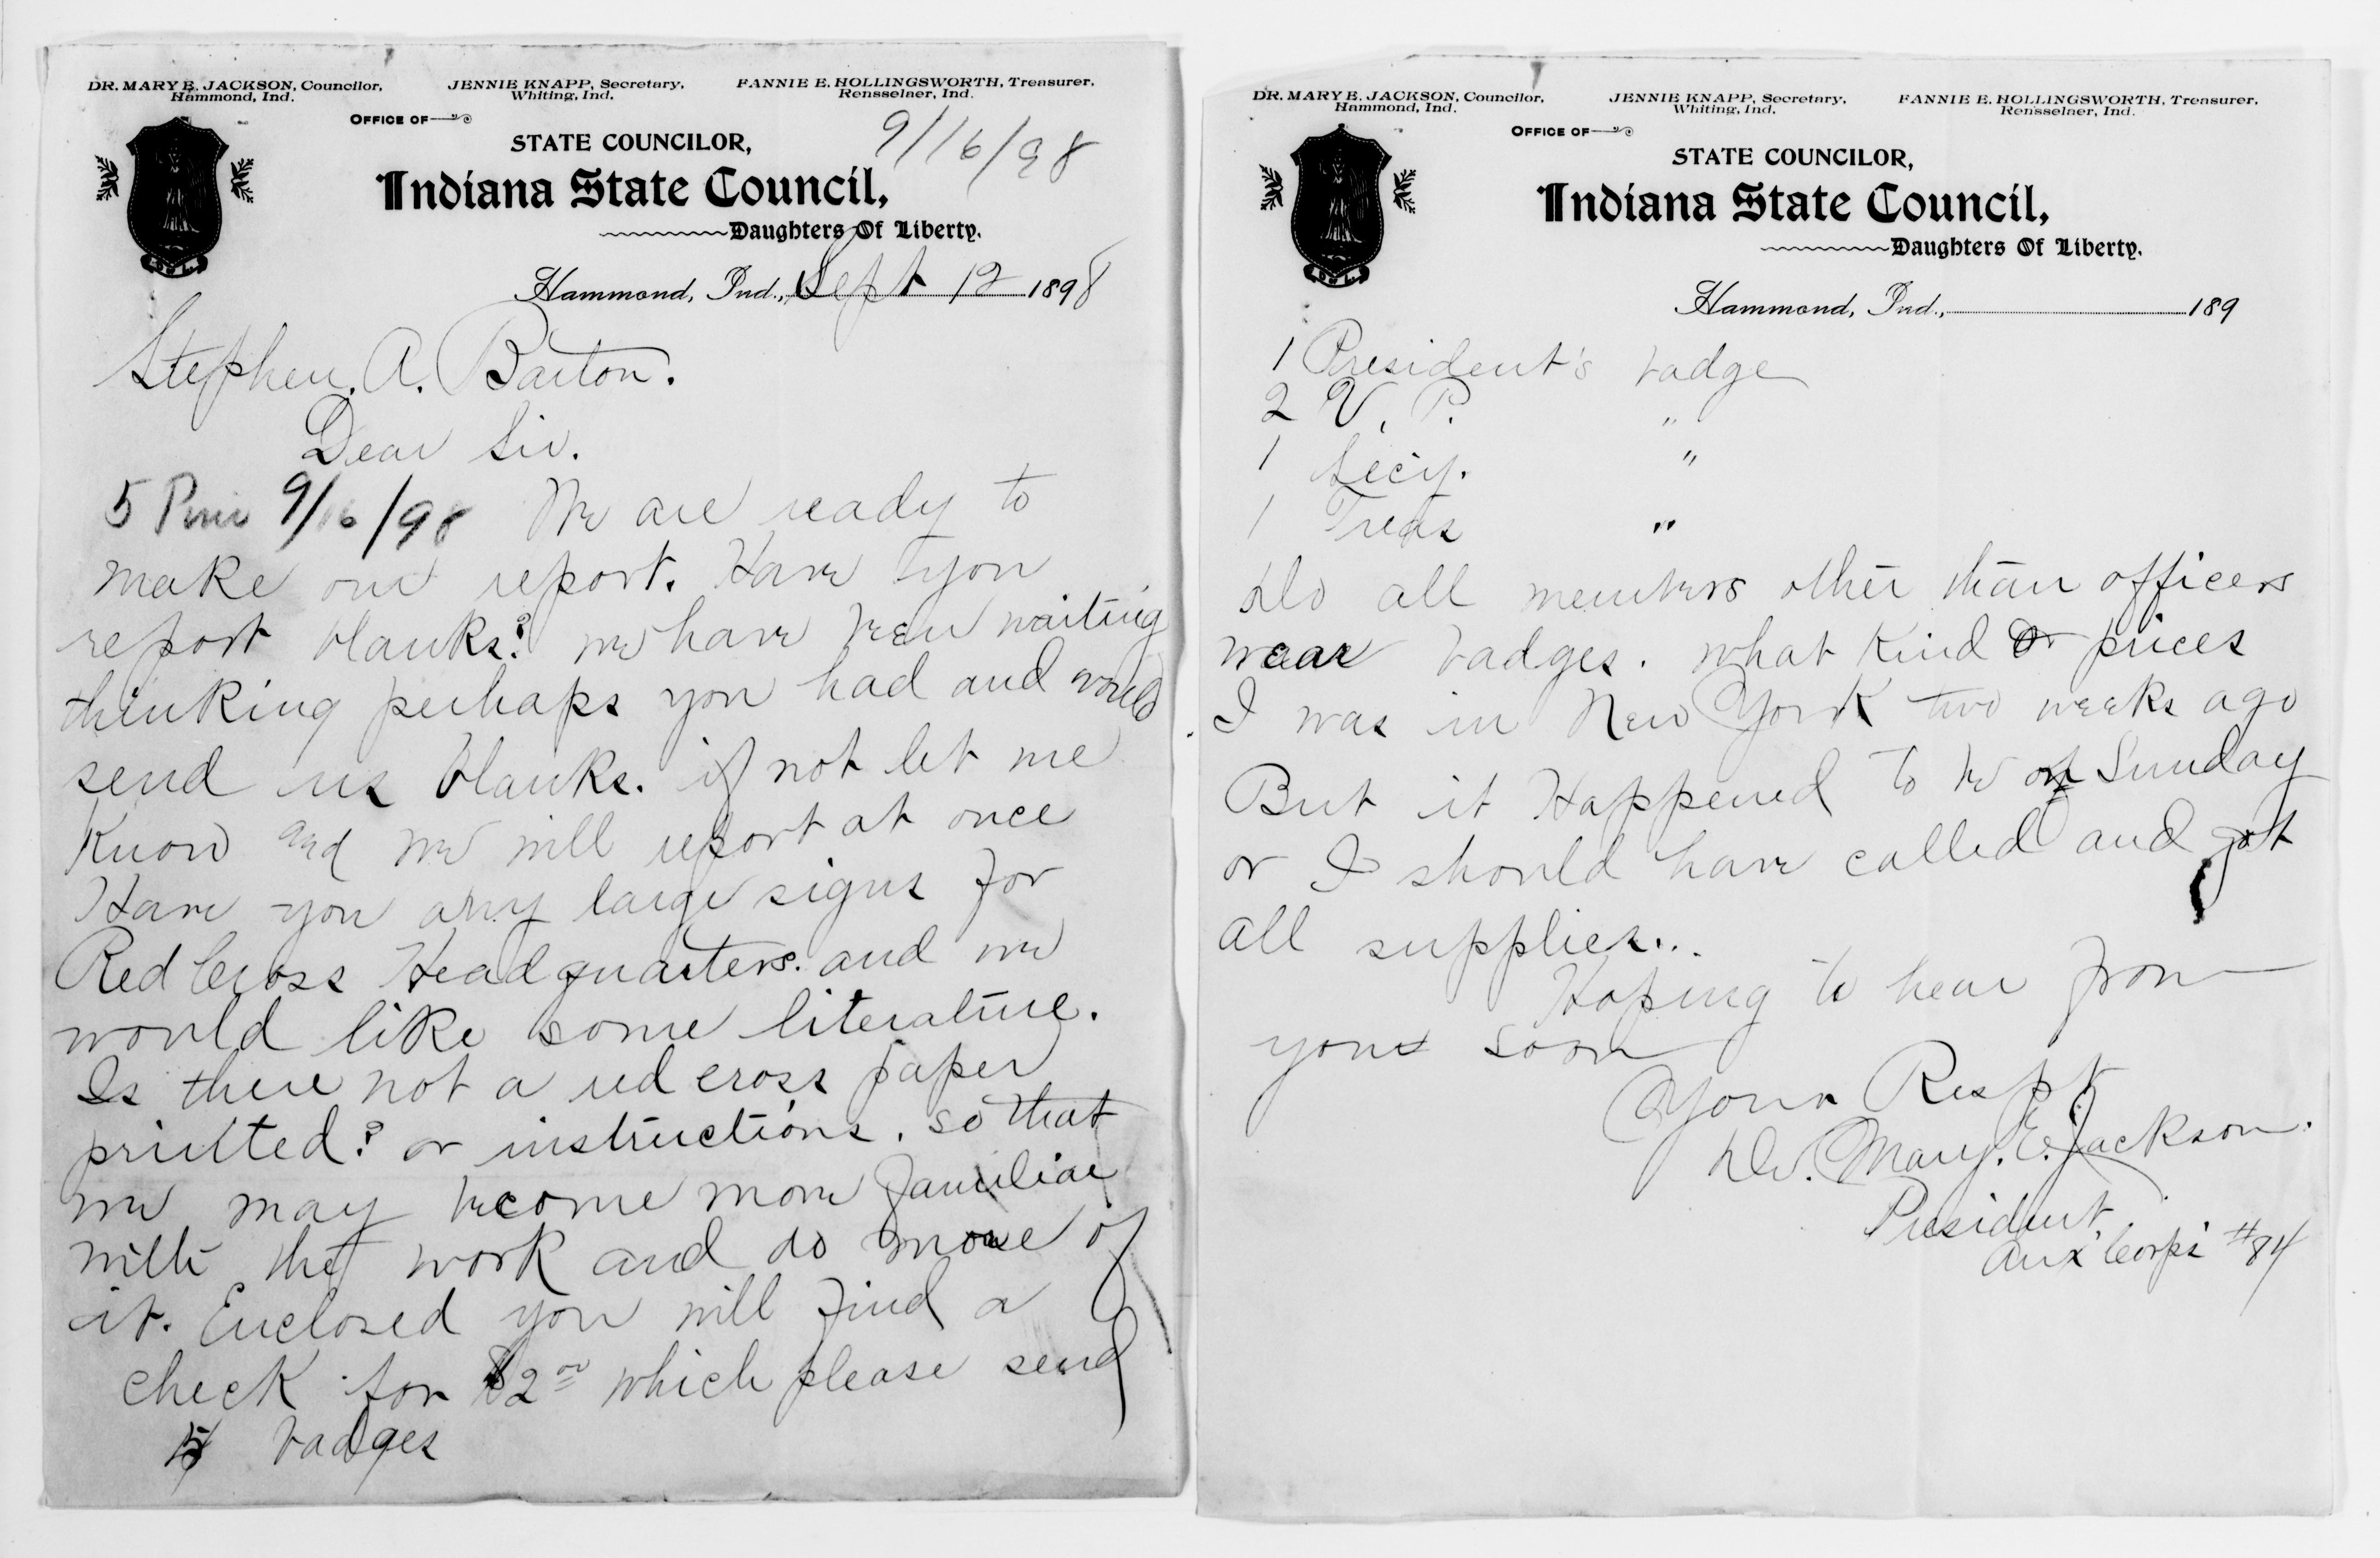 DR. MARY E. JACKSON, Councilor,
Hammond, Ind.
JENNIE KNAPP, Secretary,
Whiting, Ind.
FANNIE E. HOLLINGSWORTH, Treasurer.
Rensselaer, Ind.
OFFICE OF
STATE COUNCILOR,
9/16/98
Indiana State Council,
Daughters Of Liberty.
Hammond, Ind., Sept 12 1898
Stephen. A. Barton.
Dear Sir.
5 9/16/98 We are ready to
make our report. Have you
report blanks? we have been waiting
thinking perhaps you had and would
send us blanks. if not let me
Know and we will report at once
Have you any large signs for
Red Cross Headquarters. and we
would like some literature.
Is there not a red cross paper
printed? or instructions. so that
we may become more familiar
with the work and do more of
it. Enclosed you will find a
check for $2.00 which please send
5 badges
DR. MARY E. JACKSON, Councilor,
Hammond, Ind.
JENNIE KNAPP, Secretary,
Whiting, Ind.
FANNIE E. HOLLINGSWORTH, Treasurer.
Rensselaer, Ind.
OFFICE OF
STATE COUNCILOR,
Indiana State Council,
Daughters Of Liberty.
Hammond, Ind., 189
1 President's badge
2 V. P. "
1 Secy. "
1 Treas "
Do all members other than officers
wear badges. what Kind or prices
I was in New York two weeks ago
But it Happened to be on Sunday
or I should have called and got
all supplies..
Hoping to hear from
you soon
Yours Respt
Dr. Mary. E. Jackson.
President
Aux Corps #84